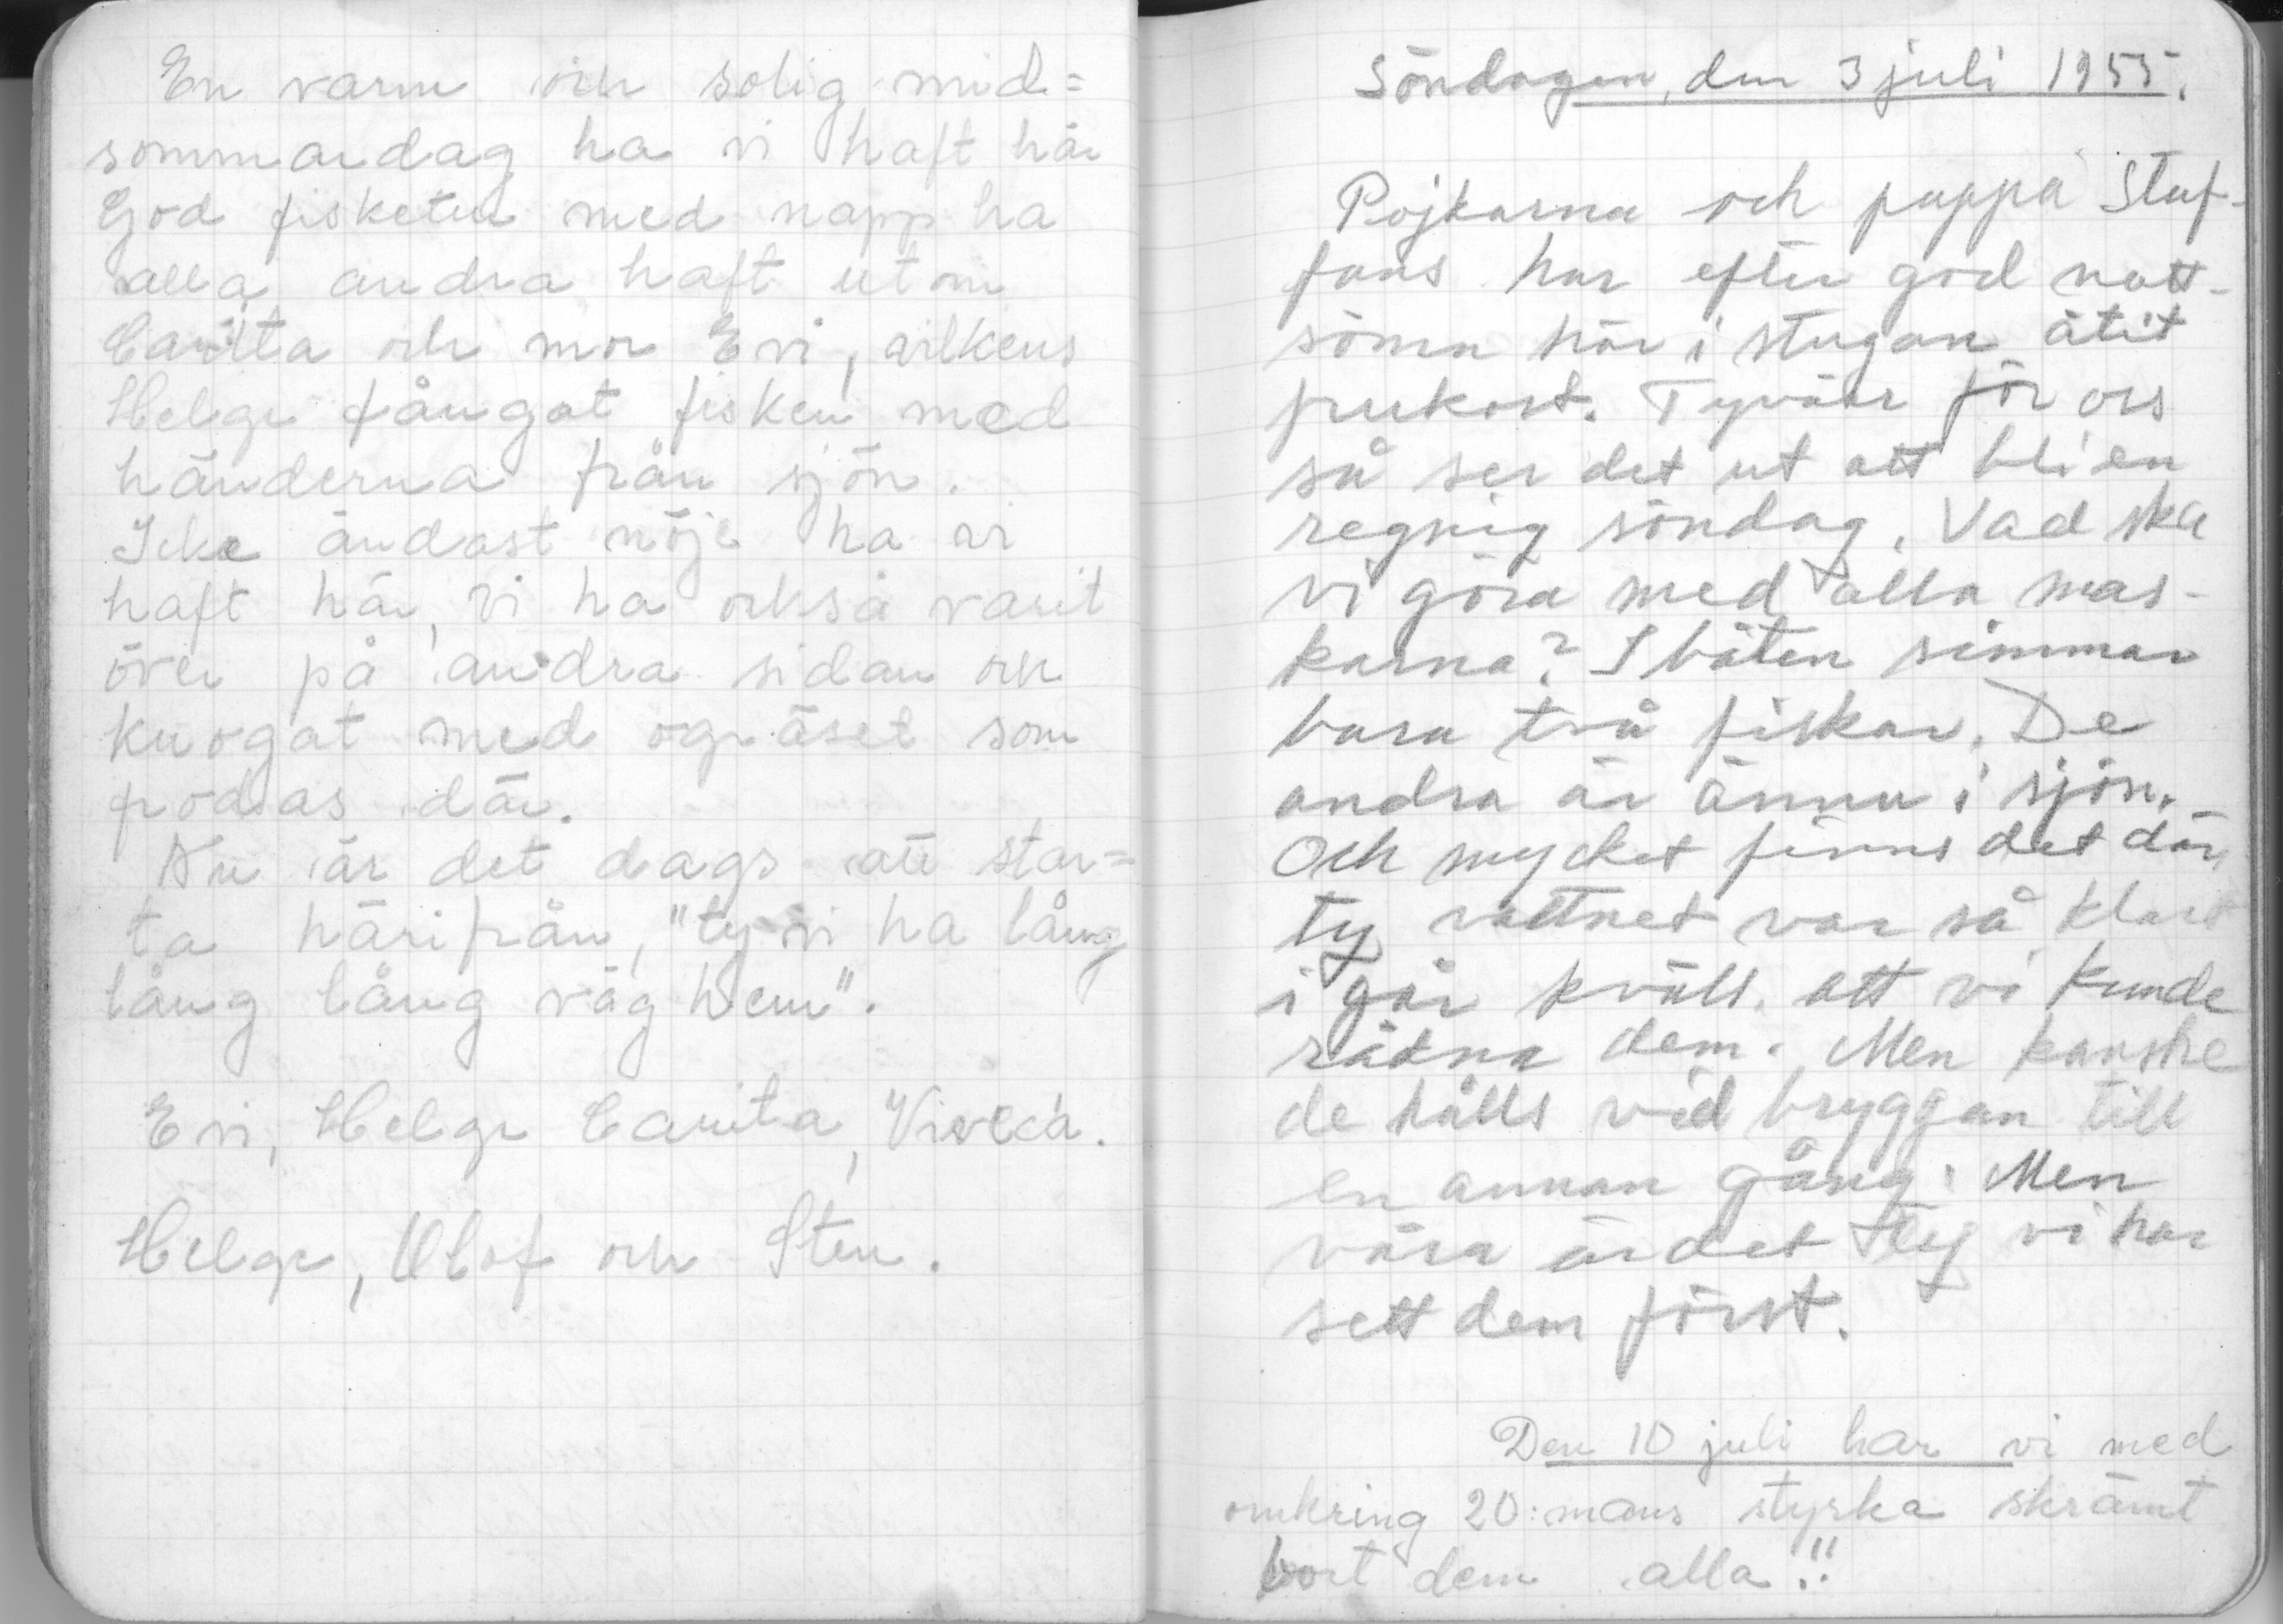 En varm och solig mid=
sommardag ha vi haft här
God fisketur med napp ha
alla andra haft utom
Carita och mor Evi, vilkens
Helge fångat fisken med
händerna från sjön.
Icke endast nöje ha vi
haft här, vi ha också varit
över på andra sidan och
knogat med ogräset som
frodas där.
Nu är det dags att star=
ta härifrån, "ty vi ha lång
lång lång väg hem".
Evi, Helge Carita, Viveca.
Helge, Olof och Sten.
Söndagen, den 3 juli 1955.
Pojkarna och pappa Staf-
fans har efter god natt-
sömn här i stugan ätit
frukost. Tyvärr för oss
så ser det ut att bli en
regnig söndag. Vad ska
vi göra med alla mas-
karna? I båten simmar
bara två fiskar. De
andra är ännu i sjön.
Och mycket finns det där,
ty vattnet var så klart
i går kväll. att vi kunde
räkna dem. Men kanske
de hålls vid bryggan till
en annan gång. Men
våra är det ty vi har
sett dem först.
Den 10 juli har vi med
omkring 20:mans styrka skrämt
bort dem alla!!